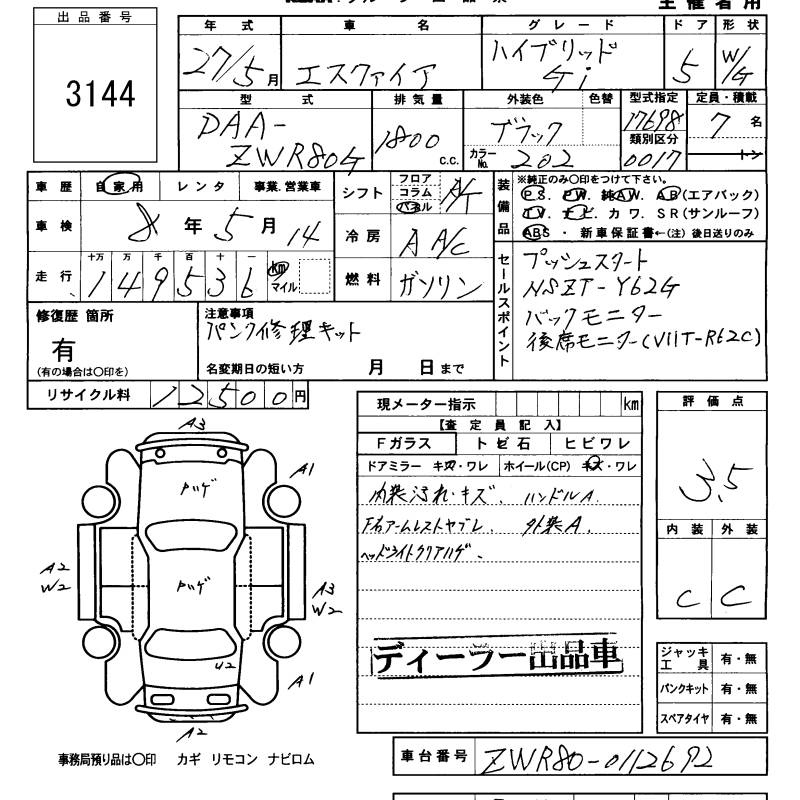 主催者用
出品番号
3144
年式 車名 グレード ドア 形状
27/5月 エスクァイア ハイブリッド Gi 5 W/G
型式 排気量 外装色 色替 型式指定 定員・積載
DAA-ZWR80G 1800 c.c. ブラック 17698 7 名
カラーNo. 202 類別区分 0017 トン
車歴 自家用 レンタ 事業.営業車
シフト フロア コラム パネル AT
車検 8 年 5 月 14
冷房 A A/C
走行 十万 万 千 百 十 一
149536 km マイル
燃料 ガソリン
装備品 ※純正のみ〇印をつけて下さい。
PS. PW. 純AW. AB(エアバック)
TV. ナビ. カワ. SR(サンルーフ)
ABS ・ 新車保証書←(注) 後日送りのみ
セールスポイント
プッシュスタート
NSZT-Y62G
バックモニター
後席モニター(V11T-R62C)
修復歴 箇所
有
(有の場合は〇印を)
注意事項
パンク修理キット
名変期日の短い方 月 日まで
リサイクル料 12500円
現メーター指示 km
【査定員記入】
Fガラス トビ石 ヒビワレ
ドアミラー キズ・ワレ ホイール(CP) キズ・ワレ
内装汚れ・キズ、ハンドルA.
F右アームレストヤブレ、外装A.
ヘッドライトクリアハゲ、
ディーラー出品車
評価点
3.5
内装 外装
C C
ジャッキ工具 有・無
パンクキット 有・無
スペアタイヤ 有・無
A3
ハゲ
A1
A2
W2
ハゲ
A3
W2
U2
A1
A2
事務局預り品は〇印 カギ リモコン ナビロム
車台番号 ZWR80-0112692